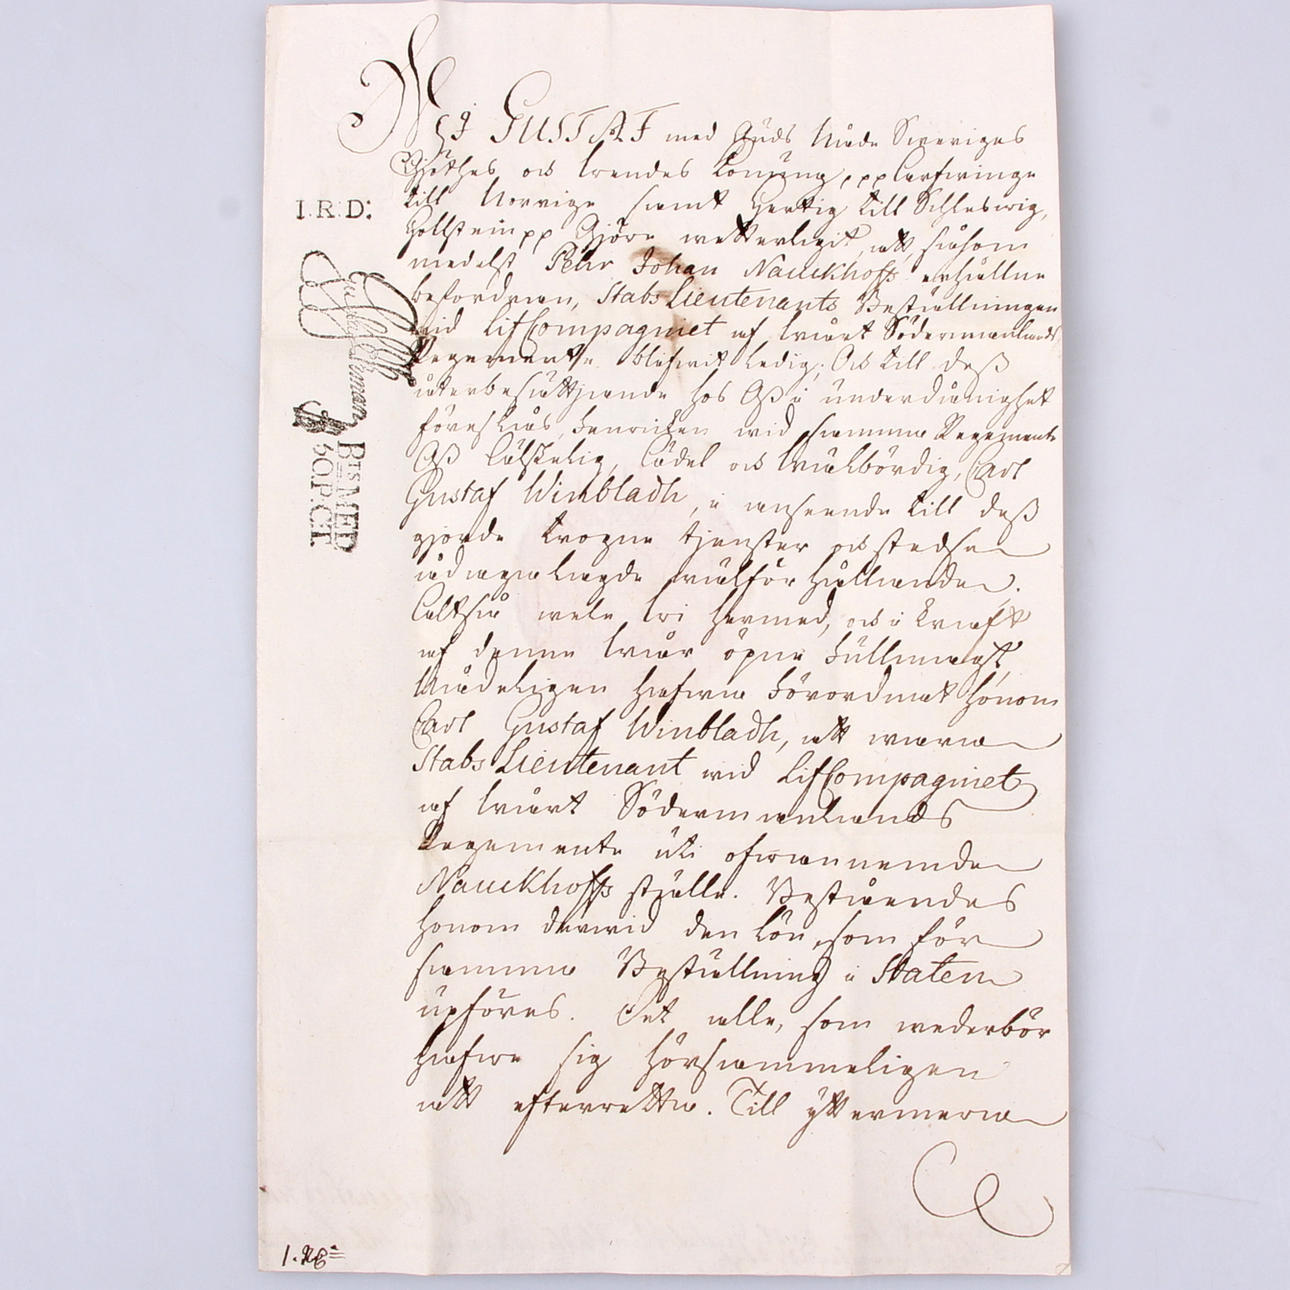 Wij GUSTAF med Guds Nåde Sweriges
Giöthes och Wendes Konung, ppp Arfwinge
till Norrige samt Hertig till Schleswig,
Hollstein pp Giöre wetterligit, att, såsom
medelst Pehr Johan Nauckhoffs erhållne
befordran, StabsLieutenants Beställningen
wid LifCompagniet af Wårt Södermanlands
Regemente blifwit ledig; Och till deß
återbesättjande hos Oß i underdånighet
föreslås, Fenricken wid samma Regemente
Oß Älskelig, Ädel och Wälbördig, Carl
Gustaf Winbladh, i anseende till deß
gjorde trogne tjenster och stedse
ådagalagde wälförhållande.
Altså wele Wi hermed, och i kraft
af denne Wår öpne Fullmagt,
Nådeligen hafwa förordnat honom
Carl Gustaf Winbladh, att wara
StabsLieutenant wid LifCompagniet
af Wårt Södermanlands
Regemente uti ofwannemde
Nauckhoffs ställe. Beståendes
honom derwid den lön, som för
samma Beställning i Staten
upföres. Det alle, som wederbör
hafwe sig hörsammeligen
att efterrätta. Till yttermera
I.R:D:
BTS MED
50.P:CT.